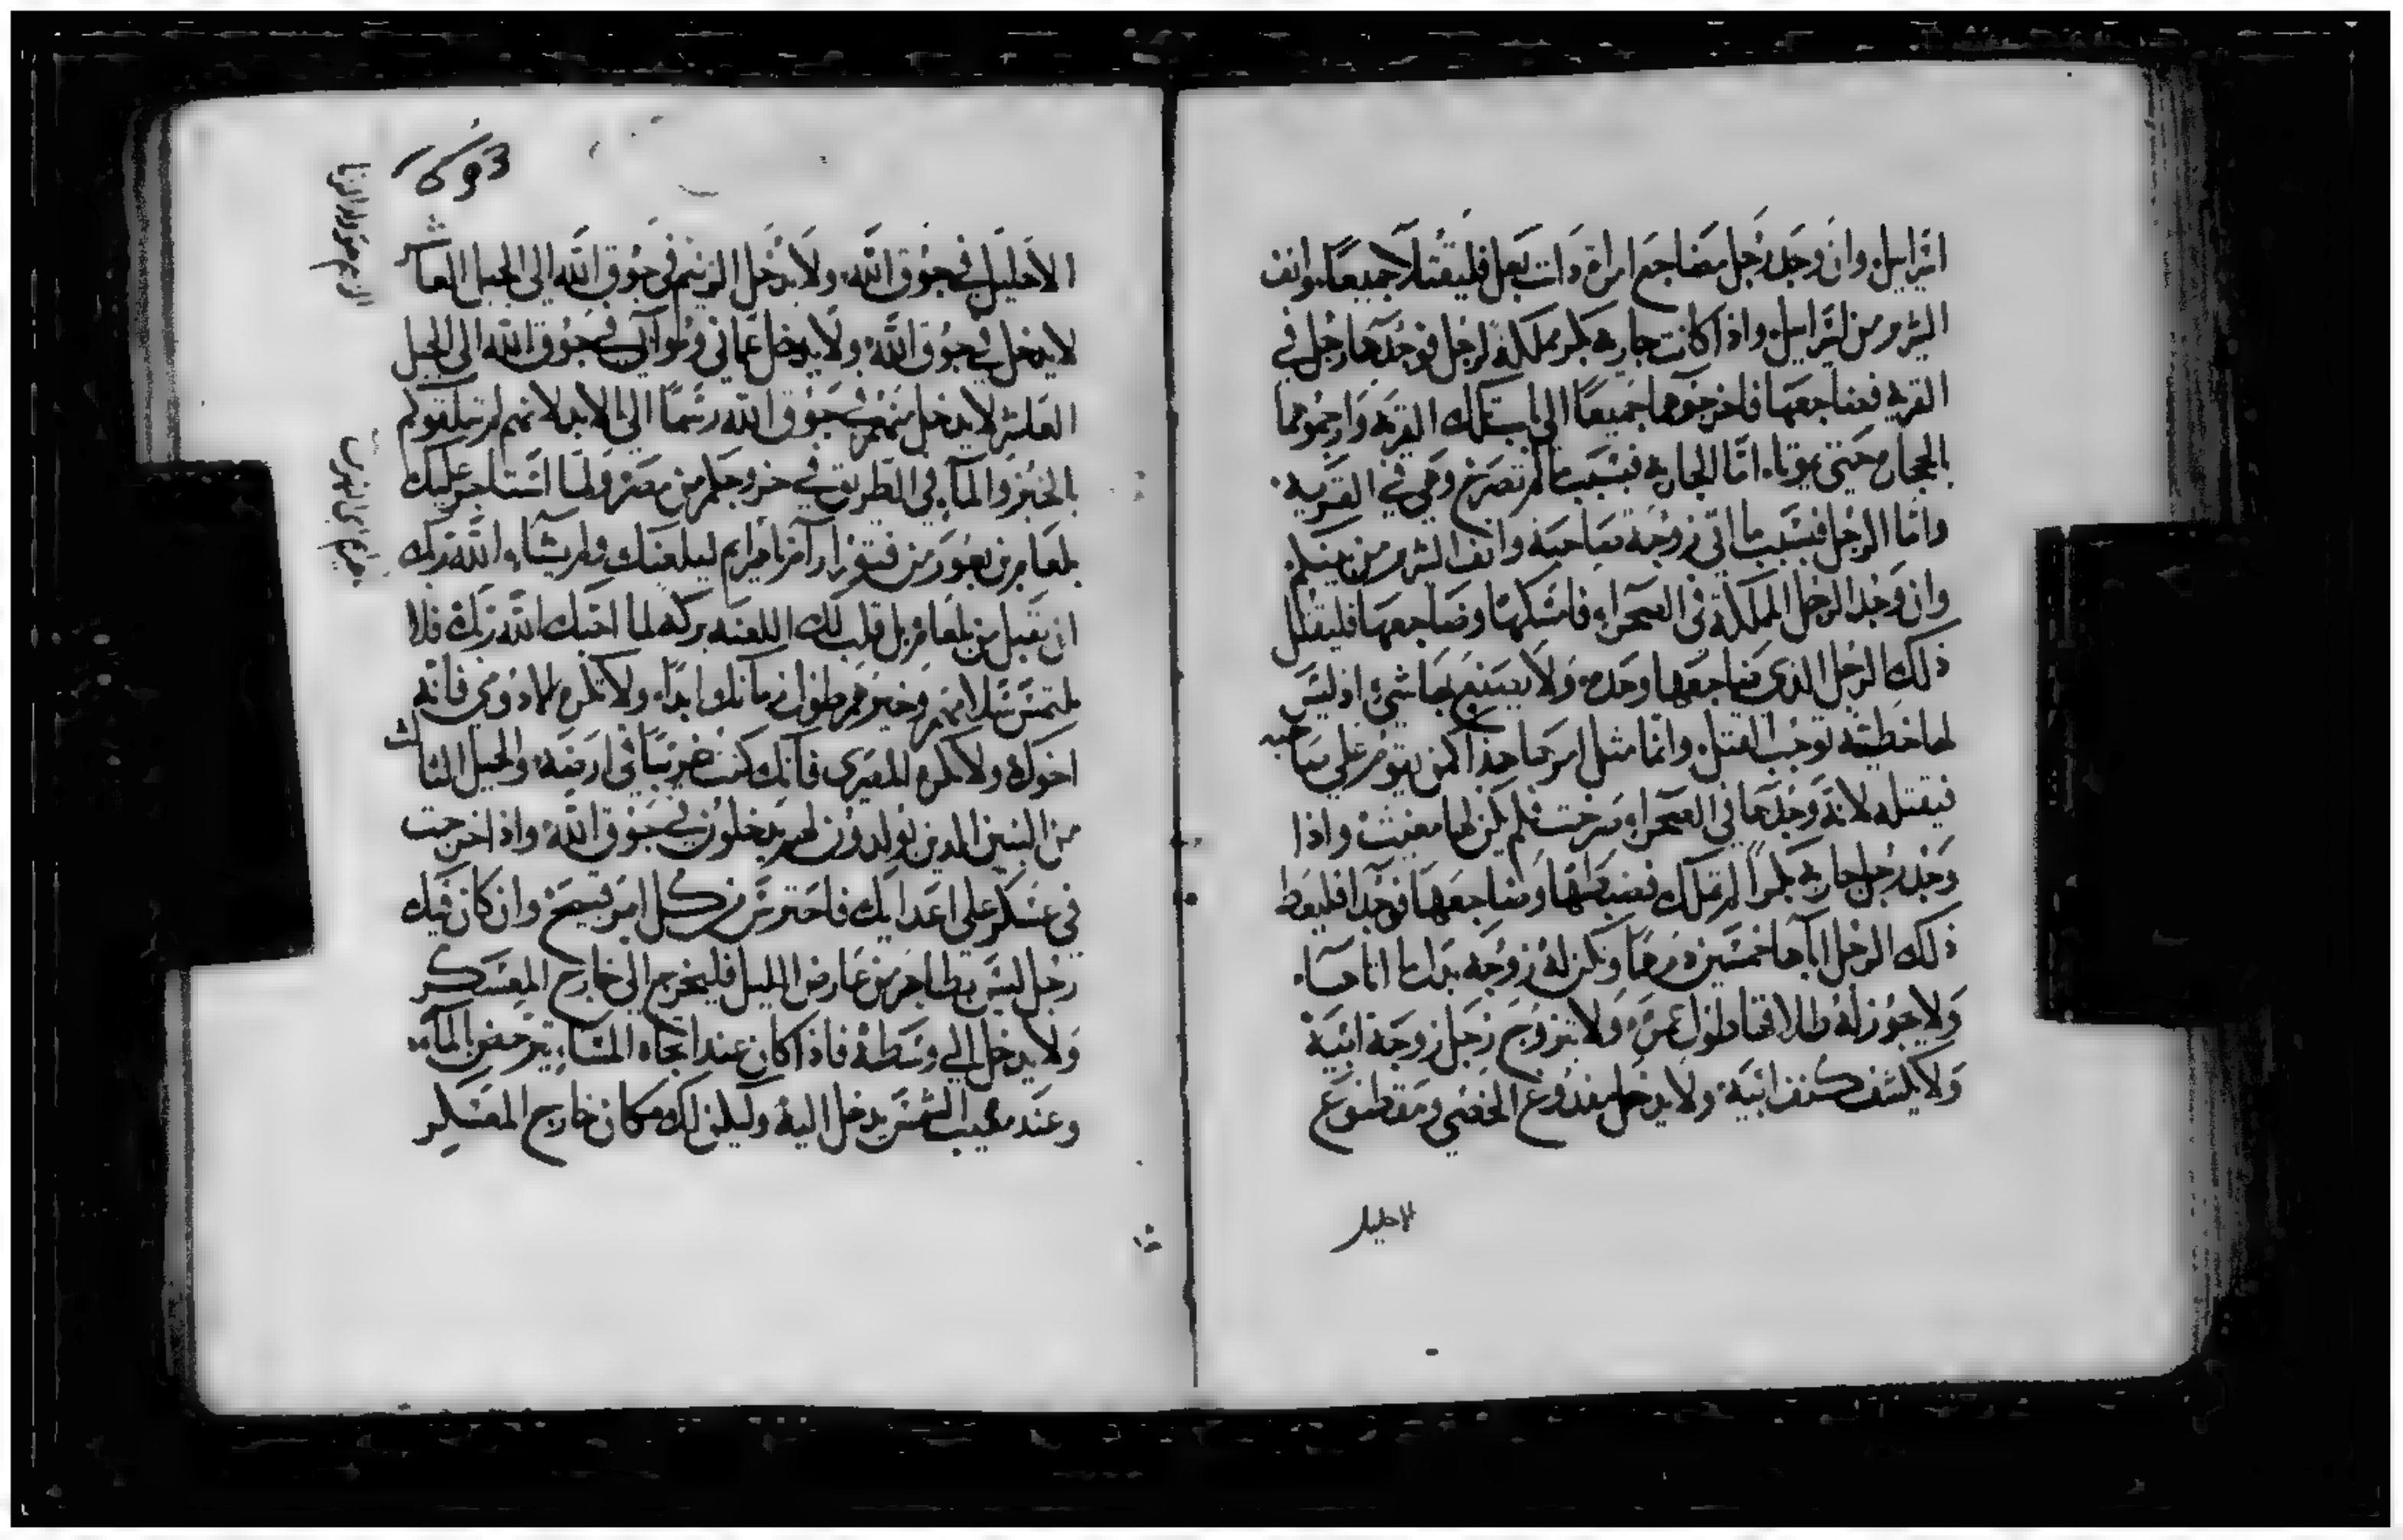 اسرايل وان وجد رجل مضاجع امراة ذات بعل فليقتلا جميعا وانف
الشر من اسرايل واذا كانت جاريه بكر مملكة لرجل فوجدها رجل في
القريه فضاجعها فاخرجوهما جميعا الى باب تلك القريه وارجموهما
بالحجاره حتى يموتا اما الجاريه فبسبب ما لم تصرخ وهي في القريه
واما الرجل فبسبب ما اتى زوجة صاحبه وانف الشر من بينكم
وان وجد الرجل المملكة في الصحراء فامسكها وضاجعها فليقتل
ذلك الرجل الذي ضاجعها وحده ولا يصنع بها شي اذ ليس
لها خطيه توجب القتل وانما مثل امرها هذا كمن يقوم على صاحبه
فيقتله لانه وجدها في الصحراء صرخت فلم يكن لها مغيث واذا
وجد رجل جاريه بكرا لم تملك فضبطها وضاجعها فوجدا فليعط
ذلك الرجل اباها خمسين درهما وتكن له زوجه بدل ما اناحها
ولا يجوز له طلاقها طول عمره ولا يتزوج رجل زوجة ابيه
ولا يكشف كنف ابيه ولا يدخل مفدوغ الخصي ومقطوع
الاحليل
الاحليل في جوق الله ولا يدخل الزنيم في جوق الله الى الجيل العاشر
لا يدخل في جوق الله ولا يدخل عماني وموآبي في جوق الله الى الجيل
العاشر لا يدخل منهم في جوق الله رسما الى الابد لانهم لم يتلقوكم
بالخبز والماء في الطريق في خروجكم من مصر ولما استاجر عليك
بلعام بن بعور من فتور ارام نهرايم ليلعنك ولم يشاء الله ربك
ان يقبل من بلعام بل قلب لك اللعنه بركه لما احبك الله ربك فلا
تلتمس سلامهم وخيرهم طول زمانك ابدا ولا تكره الادومي فانه
اخوك ولا تكره المصري فانك كنت غريبا في ارضه والجيل الثالث
من البنين الذين يولدون لهم يدخلون في جوق الله واذا خرجت
في عسكر على اعدايك فاحترس من كل امر قبيح وان كان فيك
رجل ليس بطاهر من عارض الليل فليخرج الى خارج المعسكر
ولا يدخل الى وسطه فاذا كان عند اتجاه المساء يترحض بالماء
وعند مغيب الشمس يدخل اليه وليكن لك مكان خارج المعسكر